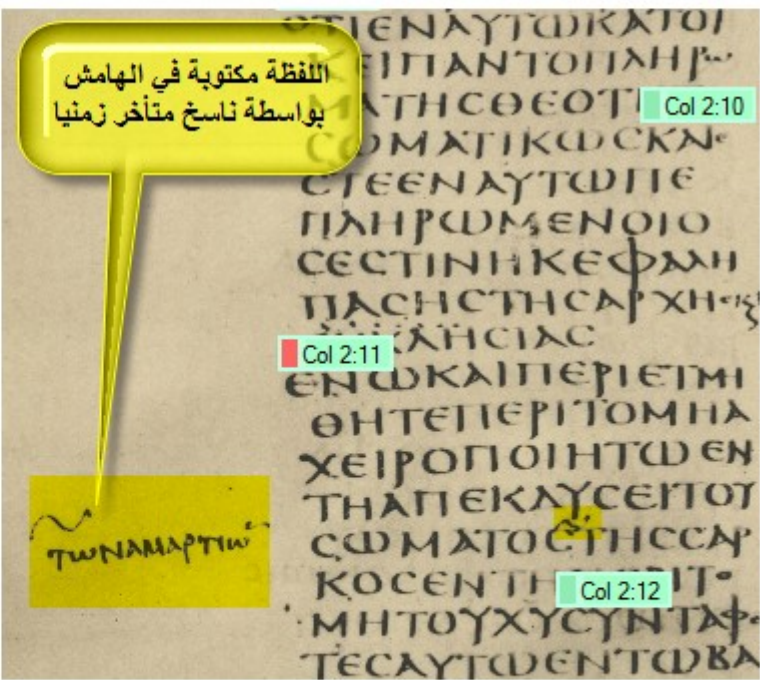 اللفظة مكتوبة في الهامش
بواسطة ناسخ متأخر زمنيا
ΟΤΙΕΝΑΥΤΩΚΑΤΟΙ
ΚΕΙΠΑΝΤΟΠΛΗΡΩ
ΜΑΤΗϹΘΕΟΤ
Col 2:10
ϹΩΜΑΤΙΚΩϹΚΑΙΕ
ϹΤΕΕΝΑΥΤΩΠΕ
ΠΛΗΡΩΜΕΝΟΙΟ
ϹΕϹΤΙΝΗΚΕΦΑΛΗ
ΠΑϹΗϹΤΗϹΑΡΧΗϹ
ΚΛΗϹΙΑϹ
Col 2:11
ΕΝΩΚΑΙΠΕΡΙΕΤΜΗ
ΘΗΤΕΠΕΡΙΤΟΜΗΑ
ΧΕΙΡΟΠΟΙΗΤΩΕΝ
ΤΗΑΠΕΚΔΥϹΕΙΤΟΥ
ϹΩΜΑΤΟϹΤΗϹϹΑΡ
ΤΩΝΑΜΑΡΤΙΩ
ΚΟϹΕΝΤΗ
Col 2:12
ΜΗΤΟΥΧΥϹΥΝΤΑΦΕ
ΤΕϹΑΥΤΩΕΝΤΩΒΑ